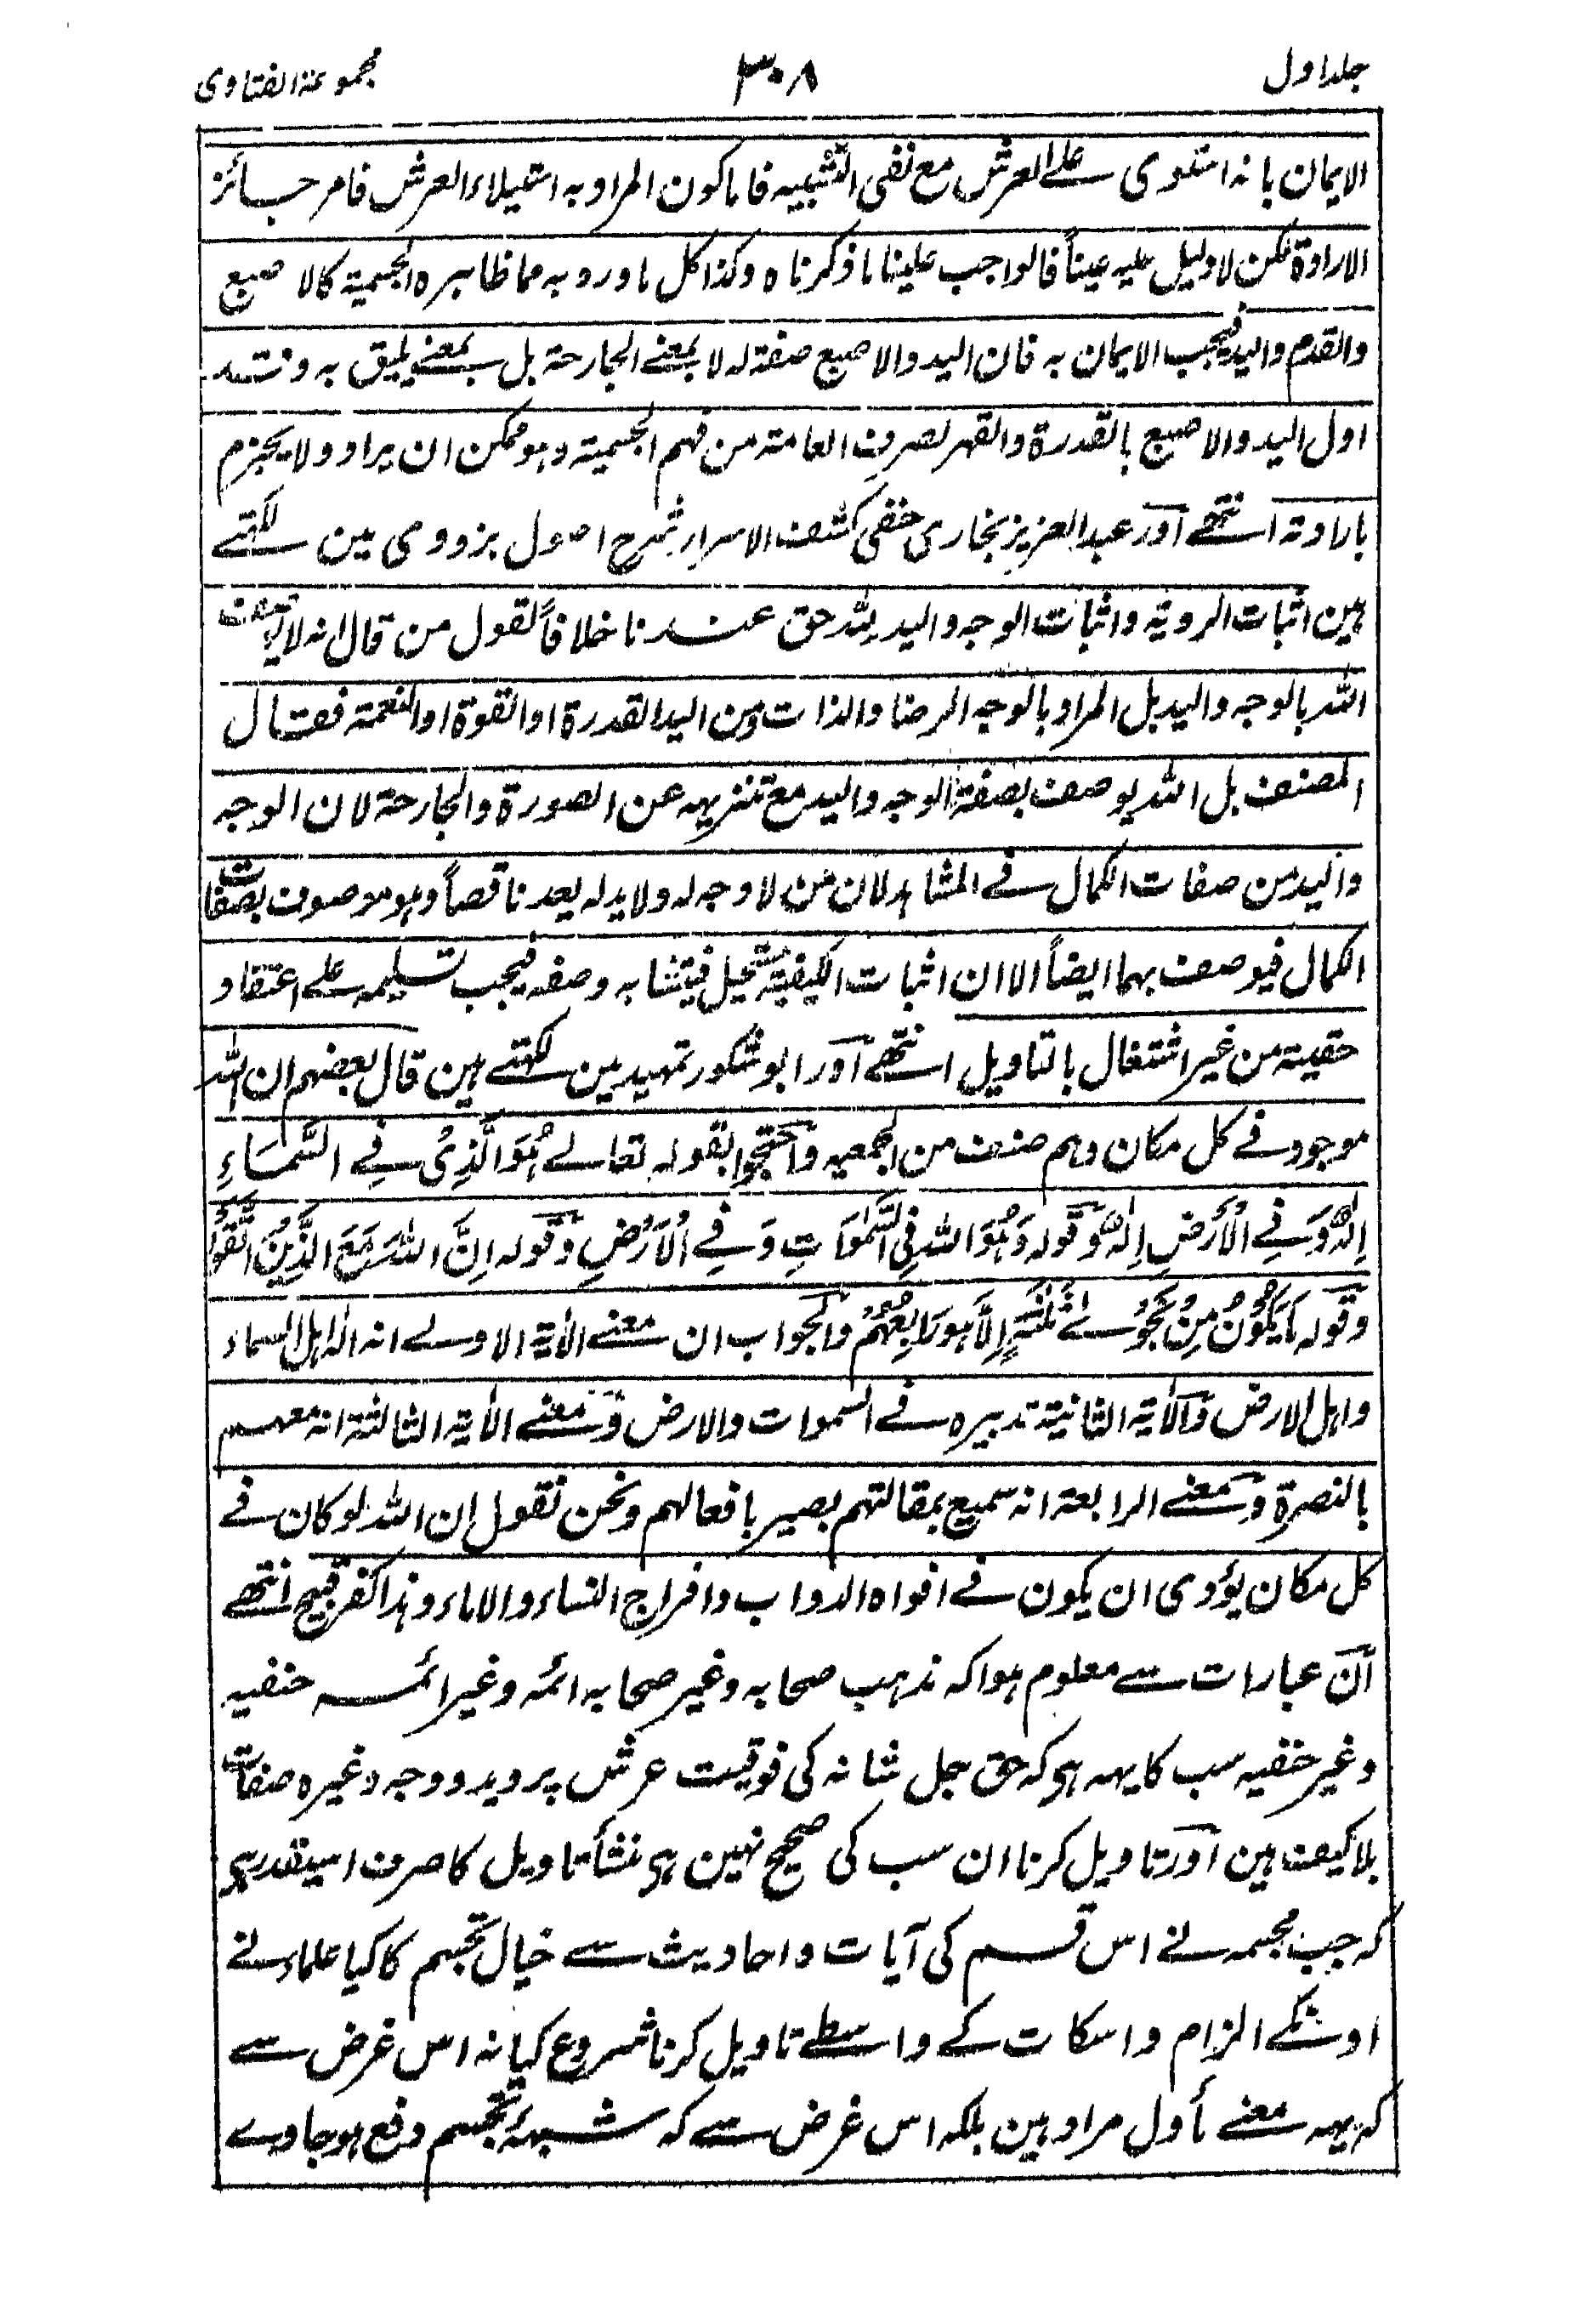 جلد اول ۳۰۸ مجموعۃ الفتاوی
الایمان بانہ استوی علے العرش مع نفی التشبیہ فاما کون المراد بہ استیلاء العرش فامر جائز
الارادۃ لکن لا دلیل علیہ عیناً فالواجب علینا ما ذکرناہ وکذا کل ما ورد بہ مما ظاہرہ الجسمیۃ کالاصبع
والقدم والید فیجب الایمان بہ فان الید والاصبع صفۃ لہ لا بمعنے الجارحۃ بل بمعنے یلیق بہ وقد
اول الید والاصبع بالقدرۃ والقہر لصرف العامۃ من فہم الجسمیۃ وہو ممکن ان یراد ولا یجزم
بارادتہ انتہے اور عبدالعزیز بخاری حنفی کشف الاسرار شرح اصول بزدوی مین لکھتے
ہین اثبات الرویۃ واثبات الوجہ والید للہ حق عندنا خلافاً لقول من قال انہ لا یوصف
اللہ بالوجہ والید بل المراد بالوجہ الرضا والذات ومن الید القدرۃ او القوۃ او النعمۃ فقال
المصنف بل اللہ یوصف بصفۃ الوجہ والید مع تنزیہہ عن الصورۃ والجارحۃ لان الوجہ
والید من صفات الکمال فے المشاہد لان من لا وجہ لہ ولا ید لہ یعد ناقصاً وہو موصوف بصفات
الکمال فیوصف بہما ایضاً الا ان اثبات الکیفیۃ مستحیل فیتشابہ وصفہ فیجب تسلیمہ علے اعتقاد
حقیتہ من غیر اشتغال بالتاویل انتہے اور ابو شکور تمہید مین لکھتے ہین قال بعضہم ان اللہ
موجود فے کل مکان وہم صنف من الجہمیہ واحتجوا بقولہ تعالے ہُوَ الَّذِیْ فِے السَّمَاءِ
اِلٰہٌ وَّ فِے الْاَرْضِ اِلٰہٌ وقولہ وَہُوَ اللہُ فِی السَّمٰوَاتِ وَ فِے الْاَرْضِ وقولہ اِنَّ اللہَ مَعَ الَّذِیْنَ اتَّقَوْا
وقولہ مَا یَکُوْنُ مِنْ نَّجْوٰے ثَلٰثَۃٍ اِلَّا ہُوَ رَابِعُہُمْ والجواب ان معنے الآیۃ الاولے انہ الٰہ اہل السماء
واہل الارض والآیۃ الثانیۃ تدبیرہ فے السموات والارض ومعنے الآیۃ الثالثۃ انہ معہم
بالنصرۃ ومعنے الرابعۃ انہ سمیع بمقالتہم بصیر بافعالہم ونحن نقول ان اللہ لو کان فے
کل مکان یؤدی ان یکون فے افواہ الدواب وافراج النساء والاماء وہذا کفر قبیح انتہے
ان عبارات سے معلوم ہوا کہ مذہب صحابہ وغیر صحابہ ائمہ وغیر ائمہ حنفیہ
وغیر حنفیہ سب کا یہہ ہی کہ حق جل شانہ کی فوقیت عرش پر وید ووجہ وغیرہ صفات
بلا کیف ہین اور تاویل کرنا ان سب کی صحیح نہین ہی منشأ تاویل کا صرف اسیقدر ہی
کہ جب مجسمہ نے اس قسم کی آیات واحادیث سے خیال تجسم کا کیا علماء نے
اونکے الزام واسکات کے واسطے تاویل کرنا شروع کیا نہ اس غرض سے
کہ یہہ معنے مأول مراد ہین بلکہ اس غرض سے کہ شبہۂ تجسم دفع ہو جاوے